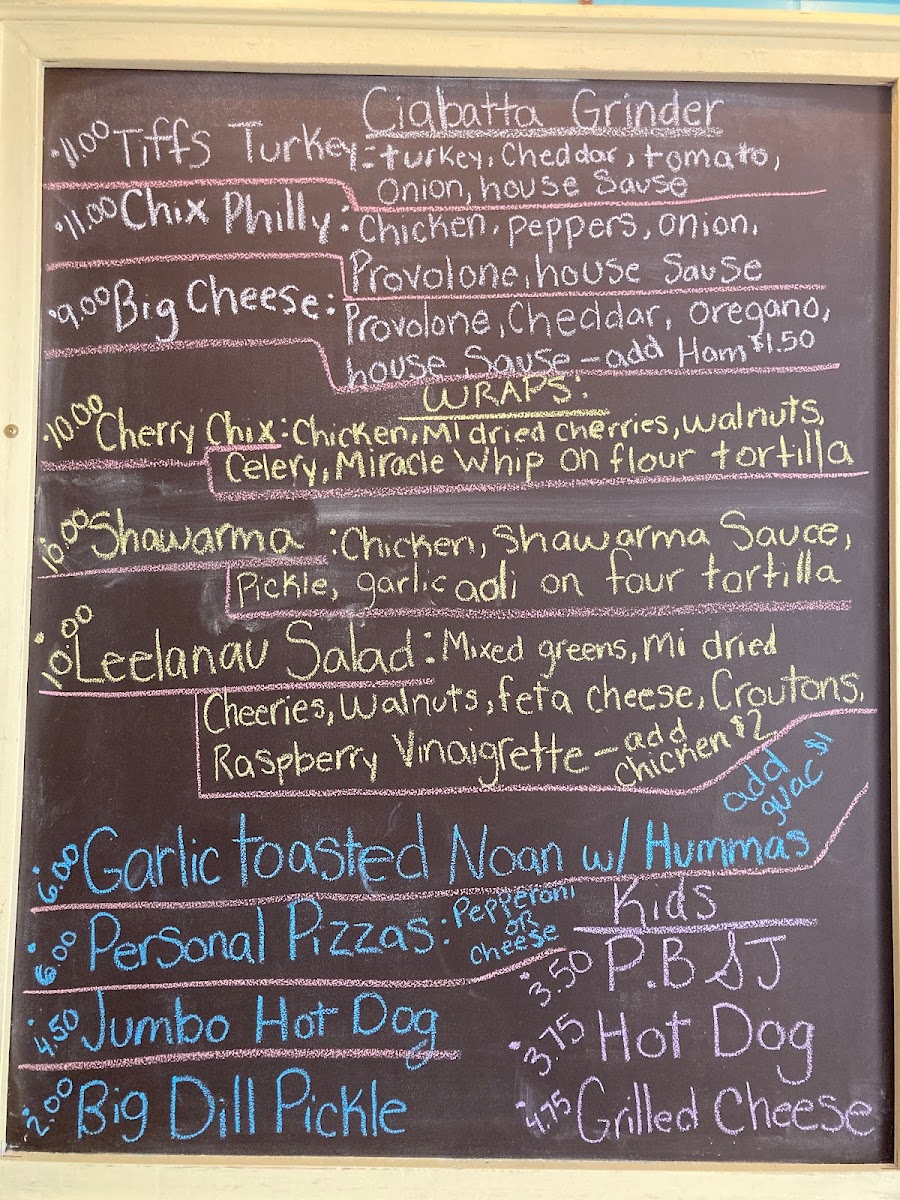 Ciabatta Grinder
11.00 Tiffs Turkey: turkey, Cheddar, tomato,
Onion, house Sause
11.00 Chix Philly: Chicken, peppers, onion,
Provolone, house Sause
9.00 Big Cheese: Provolone, Cheddar, oregano,
house Sause - add Ham $1.50
WRAPS:
10.00 Cherry Chix: Chicken, MI dried cherries, walnuts,
Celery, Miracle Whip on flour tortilla
10.00 Shawarma: Chicken, Shawarma Sauce,
Pickle, garlic aoli on four tortilla
10.00 Leelanau Salad: Mixed greens, Mi dried
Cheeries, walnuts, feta cheese, Croutons,
Raspberry Vinaigrette - add
chicken $2
add
guac $1
6.00 Garlic toasted Noan w/ Hummas
6.00 Personal Pizzas: Pepperoni
or
cheese
4.50 Jumbo Hot Dog
2.00 Big Dill Pickle
Kids
3.50 P.B & J
3.75 Hot Dog
4.75 Grilled Cheese